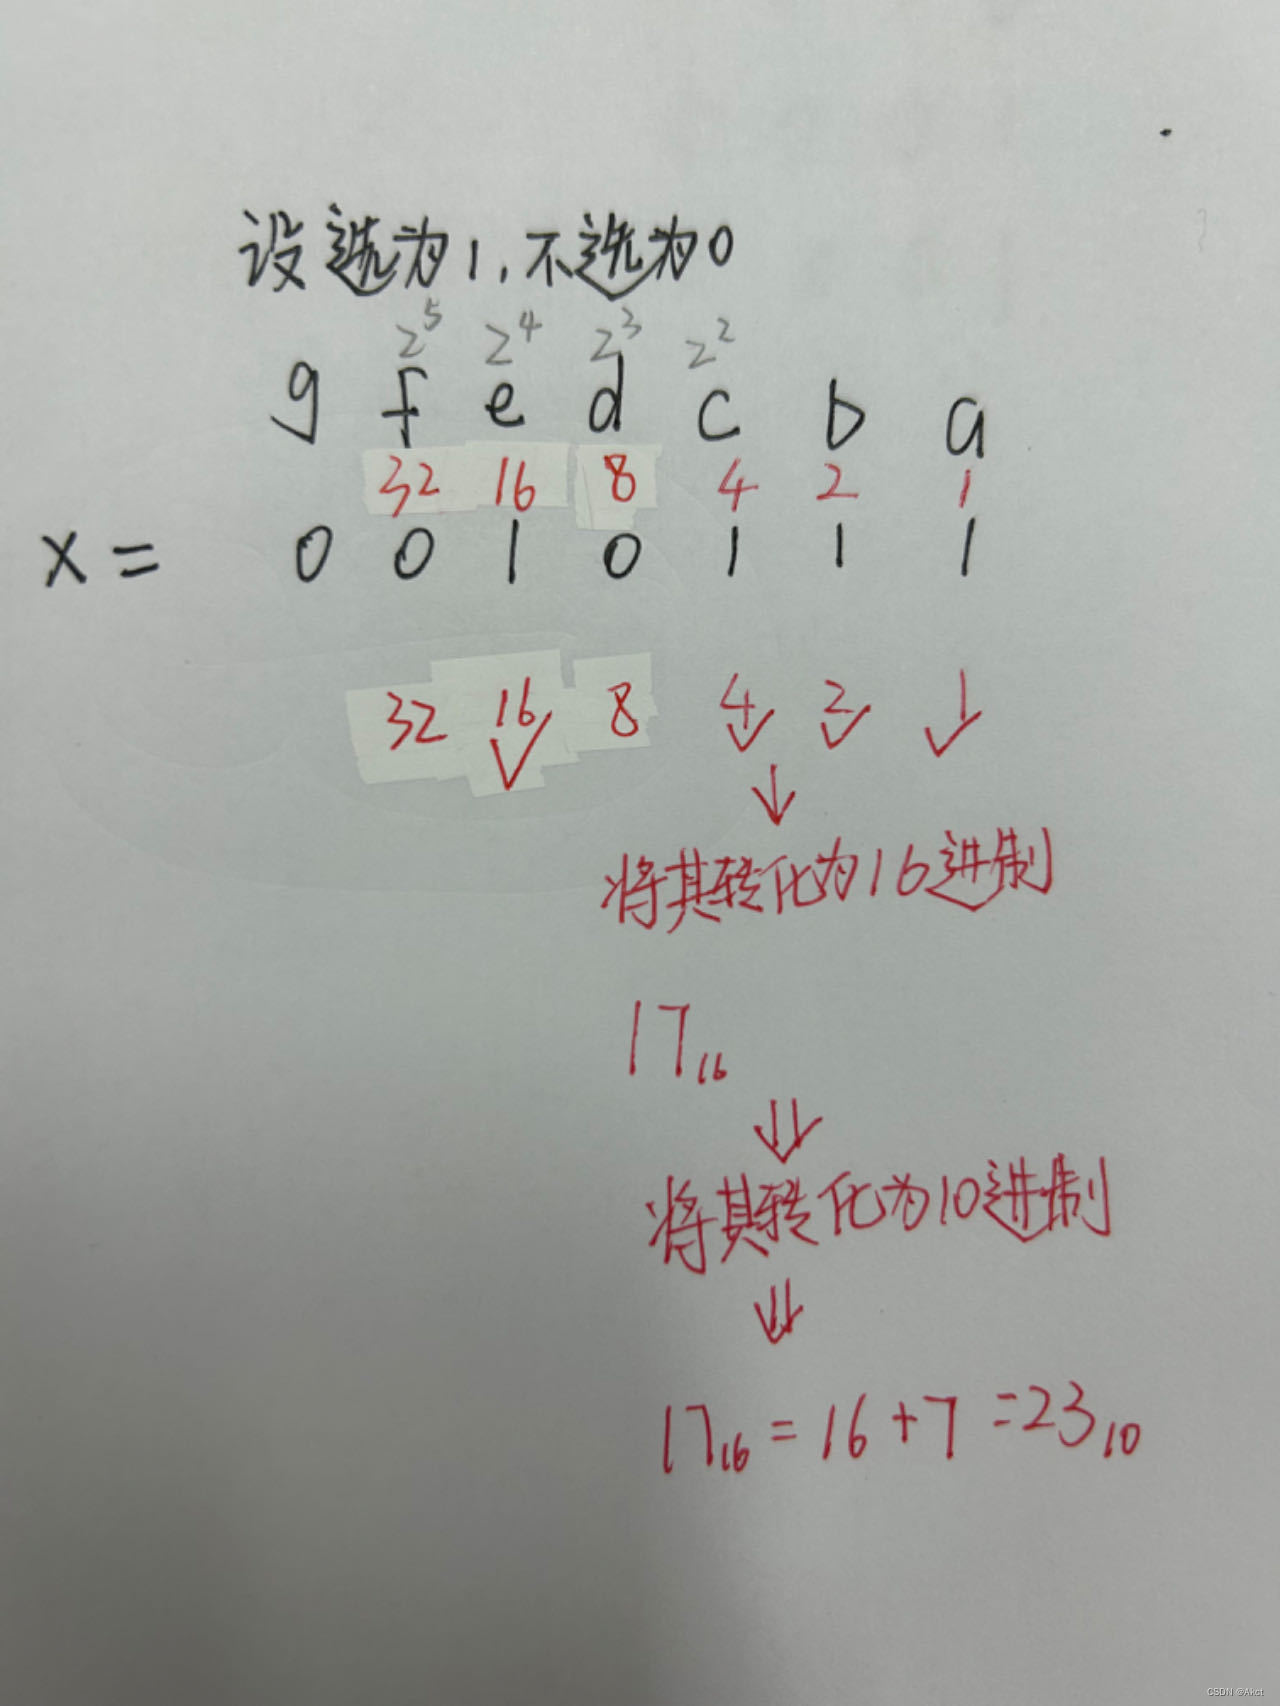 设选为1,不选为0
2^5 2^4 2^3 2^2
g f e d c b a
32 16 8 4 2 1
x = 0 0 1 0 1 1 1
32 16 8 4 2 1
将其转化为16进制
17₁₆
将其转化为10进制
17₁₆ = 16+7 =23₁₀
CSDN @Akct